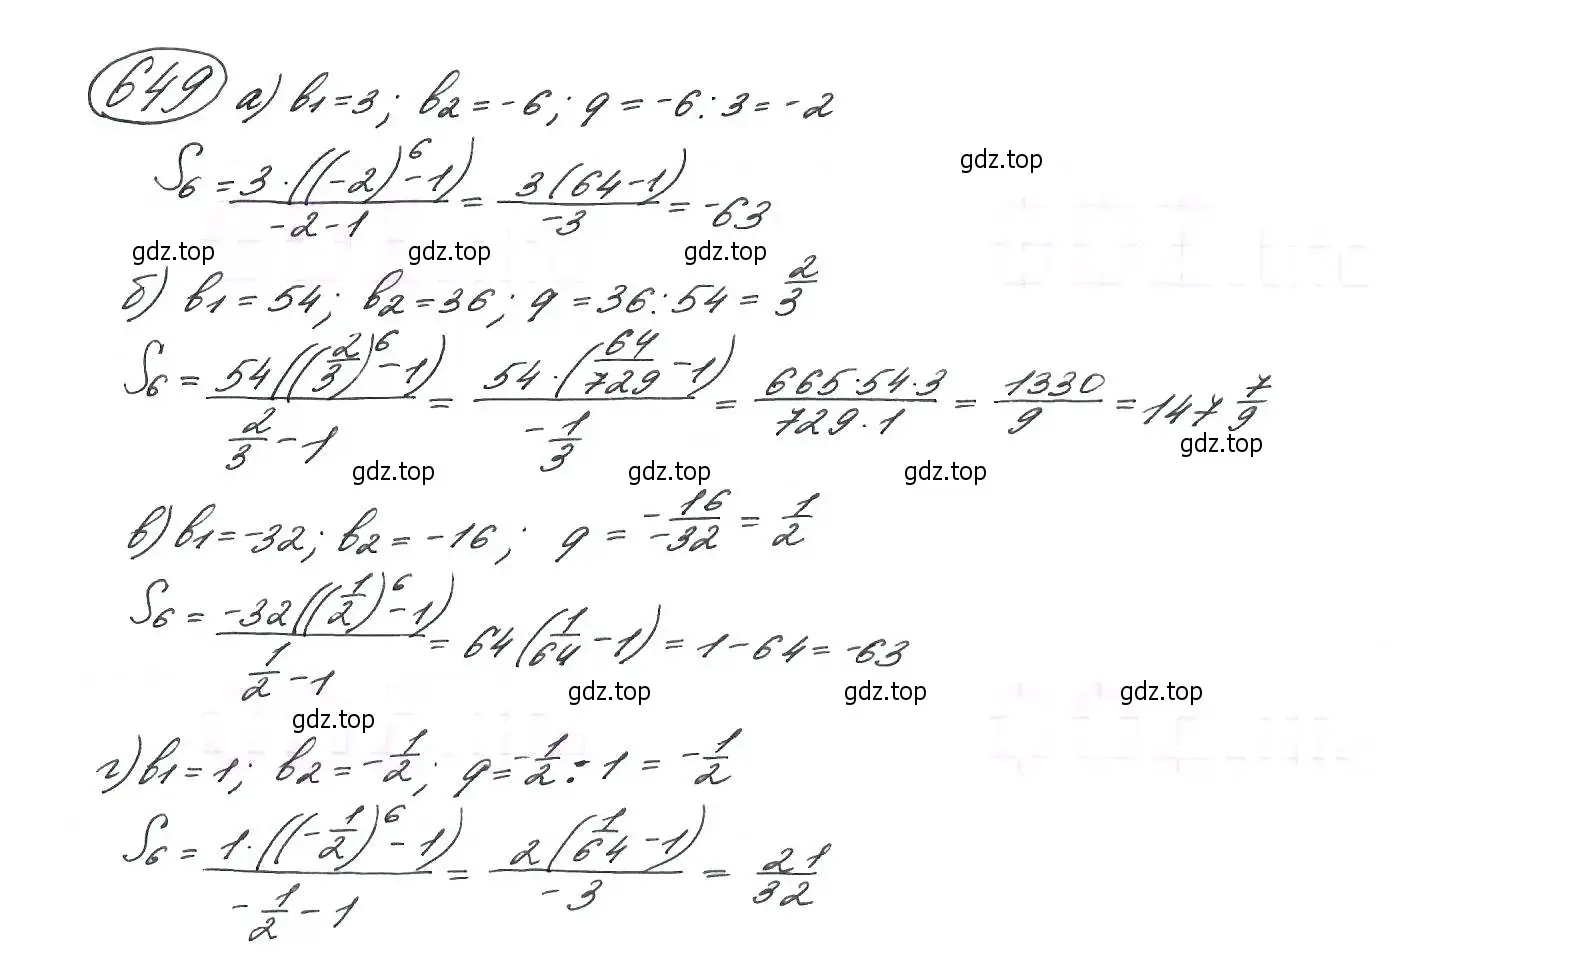 649 а) b₁=3; b₂=-6; q=-6:3=-2
gdz.top
S₆ = 3·((-2)⁶-1)/(-2-1) = 3(64-1)/(-3) = -63
gdz.top gdz.top gdz.top
б) b₁=54; b₂=36; q=36:54=2/3
S₆ = 54((2/3)⁶-1)/(2/3-1) = 54·(64/729-1)/(-1/3) = 665·54·3/(729·1) = 1330/9 = 147 7/9
gdz.top
gdz.top gdz.top gdz.top
в) b₁=-32; b₂=-16; q = -16/-32 = 1/2
S₆ = -32((1/2)⁶-1)/(1/2-1) = 64(1/64-1) = 1-64 = -63
gdz.top gdz.top gdz.top
gdz.top
г) b₁=1; b₂=-1/2; q=-1/2:1=-1/2
S₆ = 1·((-1/2)⁶-1)/(-1/2-1) = 2(1/64-1)/(-3) = 21/32